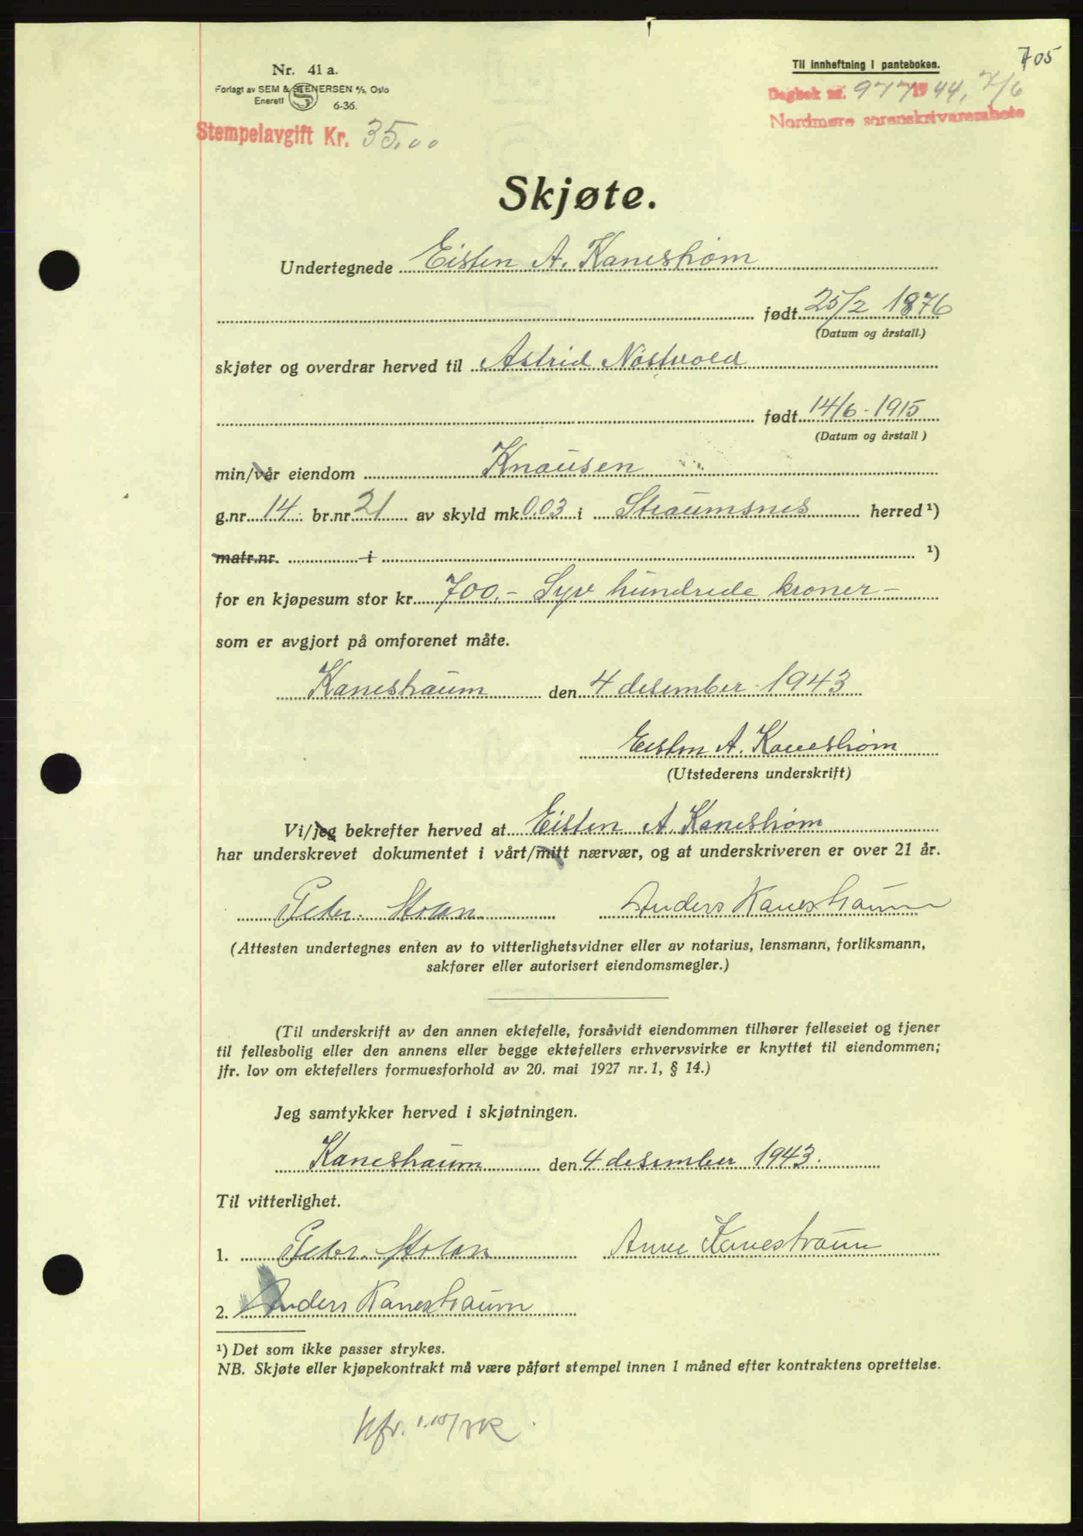 705
Nr. 41 a.
Forlagt av SEM & STENERSEN A/S, Oslo
Enerett 6-36.
Til innheftning i panteboken.
Dagbok nr. 977 1944, 7/6
Nordmøre sorenskriverembete
Stempelavgift Kr. 35,00
Skjøte.
Undertegnede Eisten A. Kanestrøm
født 25/2 1876
(Datum og årstall.)
skjøter og overdrar herved til Astrid Nøstvold
født 14/6-1915
(Datum og årstall)
min/vår eiendom Knausen
g.nr. 14 br.nr. 21 av skyld mk 0.03 i Straumsnes herred ¹)
matr.nr. i ¹)
for en kjøpesum stor kr. 700.- Syv hundrede kroner -
som er avgjort på omforenet måte.
Kanestraum den 4 desember 1943
Eisten A. Kanestrøm
(Utstederens underskrift)
Vi/jeg bekrefter herved at Eisten A Kanestrøm
har underskrevet dokumentet i vårt/mitt nærvær, og at underskriveren er over 21 år.
Peder Stolan Anders Kanestraum
(Attesten undertegnes enten av to vitterlighetsvidner eller av notarius, lensmann, forliksmann,
sakfører eller autorisert eiendomsmegler.)
(Til underskrift av den annen ektefelle, forsåvidt eiendommen tilhører felleseiet og tjener
til fellesbolig eller den annens eller begge ektefellers erhvervsvirke er knyttet til eiendommen;
jfr. lov om ektefellers formuesforhold av 20. mai 1927 nr. 1, § 14.)
Jeg samtykker herved i skjøtningen.
Kanestraum den 4 desember 1943.
Til vitterlighet.
1. Peder Stolan Anne Kanestraum
2. Anders Kanestraum
¹) Det som ikke passer strykes.
NB. Skjøte eller kjøpekontrakt må være påført stempel innen 1 måned efter kontraktens oprettelse.